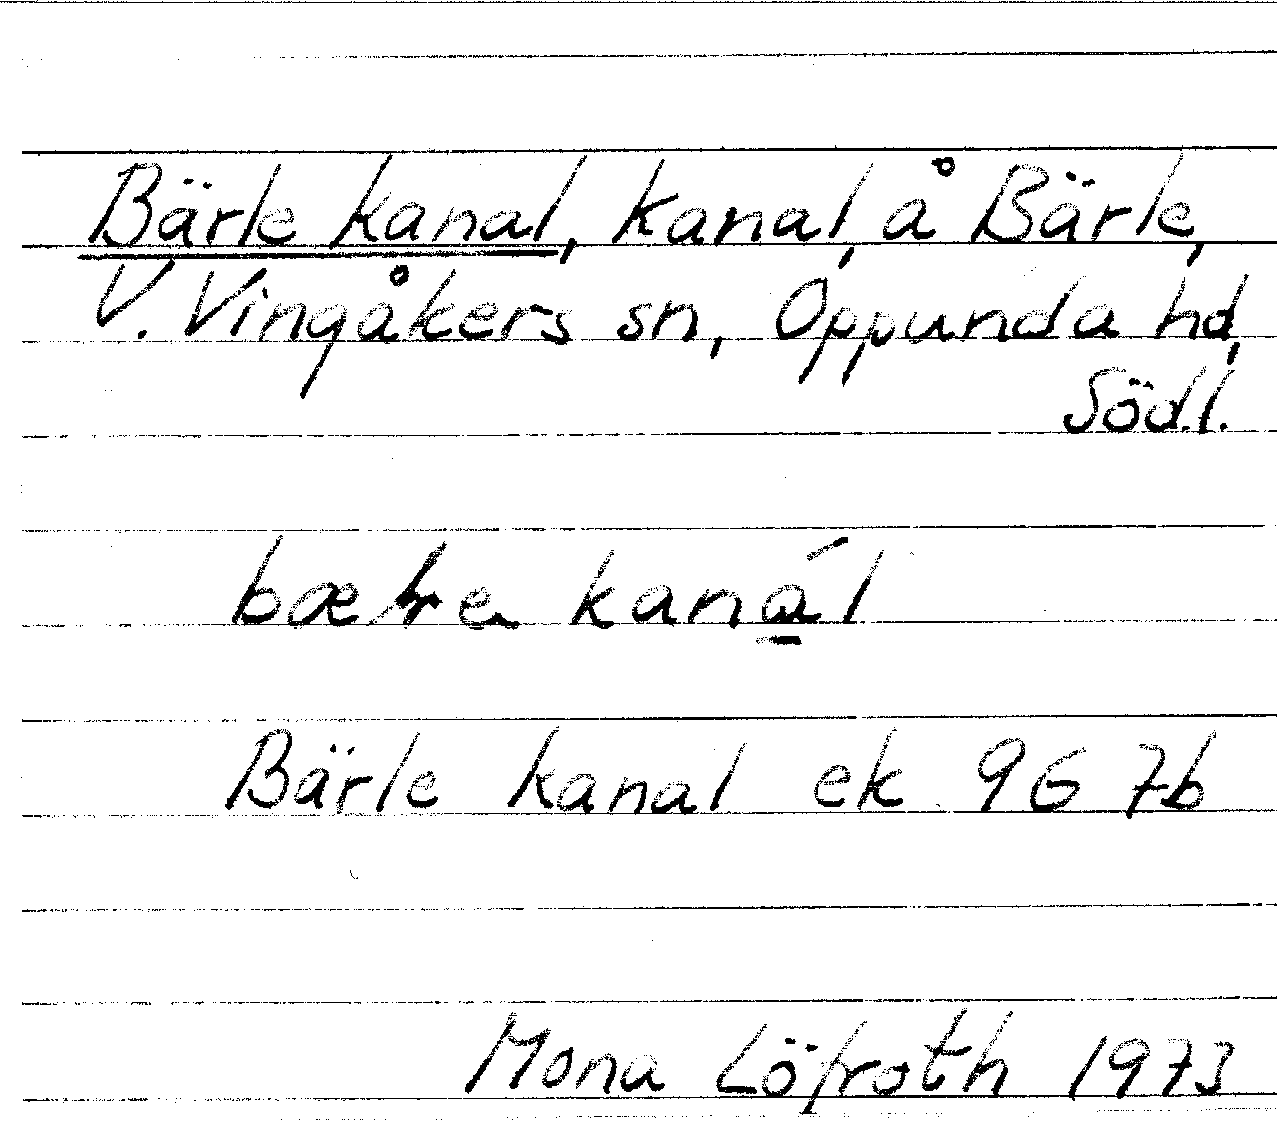 Bärle kanal, kanal, å Bärle,
V. Vingåkers sn, Oppunda hd,
Södl.
kanál
Bärle kanal ek 9G 7b
Mona Löfroth 1973